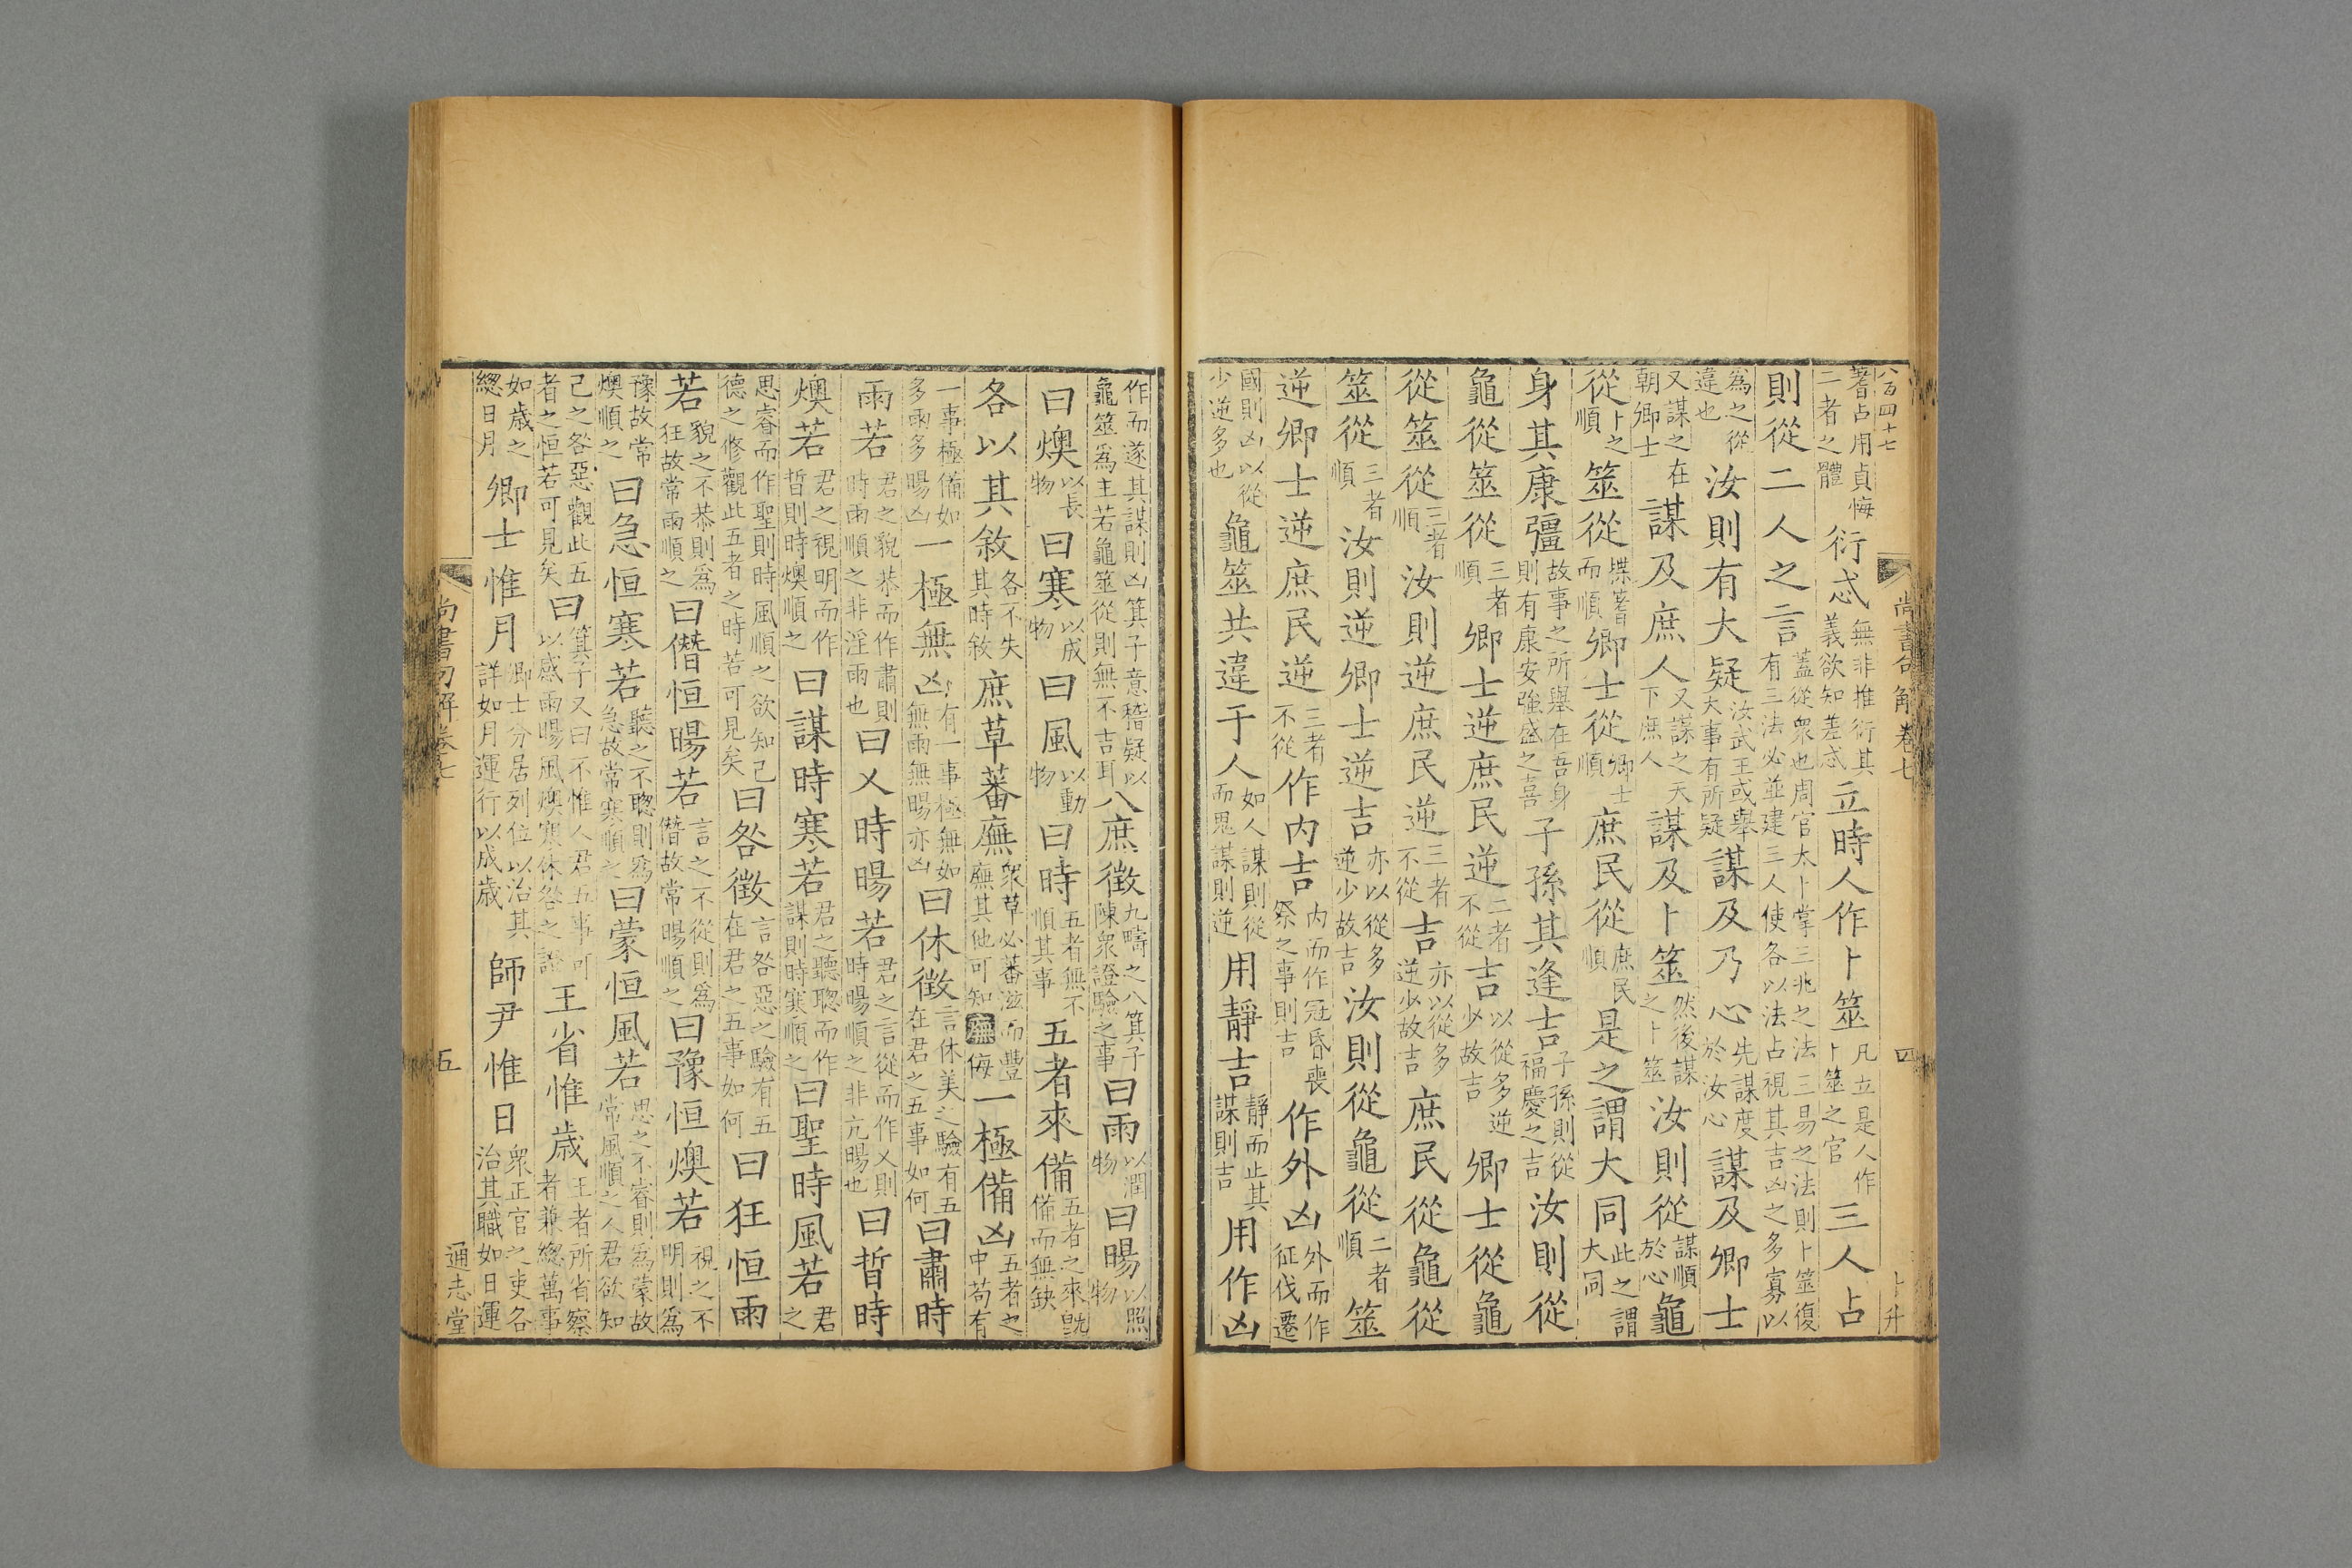 八百四十七
尚書句解卷七
四
卜升
蓍占用貞悔二者之體衍忒無非推衍其義欲知差忒立時人作卜筮凡立是人作卜筮之官三人占
則從二人之言蓋從衆也周官太卜掌三兆之法三易之法則卜筮復有三法必並建三人使各以法占視其吉凶之多寡以
為之從違也汝則有大疑汝武王或舉大事有所疑謀及乃心先謀度於汝心謀及卿士
又謀之在朝卿士謀及庶人又謀之天下庶人謀及卜筮然後謀之卜筮汝則從謀順於心龜
從卜之順筮從揲蓍而順卿士從卿士順庶民從庶民順是之謂大同此之謂大同
身其康彊故事之所舉在吾身則有康安強盛之喜子孫其逢吉子孫則從福慶之吉汝則從
龜從筮從三者順卿士逆庶民逆二者不從吉以從多逆少故吉卿士從龜
從筮從三者順汝則逆庶民逆三者不從吉亦以從多逆少故吉庶民從龜從
筮從三者順汝則逆卿士逆吉亦以從多逆少故吉汝則從龜從二者順筮
逆卿士逆庶民逆三者不從作内吉内而作冠昏喪祭之事則吉作外凶外而作征伐遷
國則凶以從少逆多也龜筮共違于人如人謀則從而鬼謀則逆用靜吉靜而止其謀則吉用作凶
作而遂其謀則凶箕子意稽疑以龜筮爲主若龜筮從則無不吉耳八庶徵九疇之八箕子陳衆證驗之事曰雨以潤物曰暘以照物
曰燠以長物曰寒以成物曰風以動物曰時五者無不順其事五者來備五者之來旣備而無缺
各以其敘各不失其時敘庶草蕃廡衆草必蕃滋而豐廡其他可知廡侮一極備凶五者之中苟有
一事極備如多雨多暘凶一極無凶有一事極無如無雨無暘亦凶曰休徵言休美之驗有五在君之五事如何曰肅時
雨若君之貌恭而作肅則時雨順之非淫雨也曰乂時暘若君之言從而作乂則時暘順之非亢暘也曰晢時
燠若君之視明而作晢則時燠順之曰謀時寒若君之聽聰而作謀則時寒順之曰聖時風若君之
思睿而作聖則時風順之欲知己德之修觀此五者之時若可見矣曰咎徵言咎惡之驗有五在君之五事如何曰狂恒雨
若貌之不恭則爲狂故常雨順之曰僭恒暘若言之不從則爲僭故常暘順之曰豫恒燠若視之不明則爲
豫故常燠順之曰急恒寒若聽之不聰則爲急故常寒順之曰蒙恒風若思之不睿則爲蒙故常風順之人君欲知
己之咎惡觀此五者之恒若可見矣曰箕子又曰不惟人君五事可以感雨暘風燠寒休咎之證王省惟歲王者所省察者兼總萬事
如歲之總日月卿士惟月卿士分居列位以治其詳如月運行以成歲師尹惟日衆正官之吏各治其職如日運
尚書句解卷七
五
通志堂